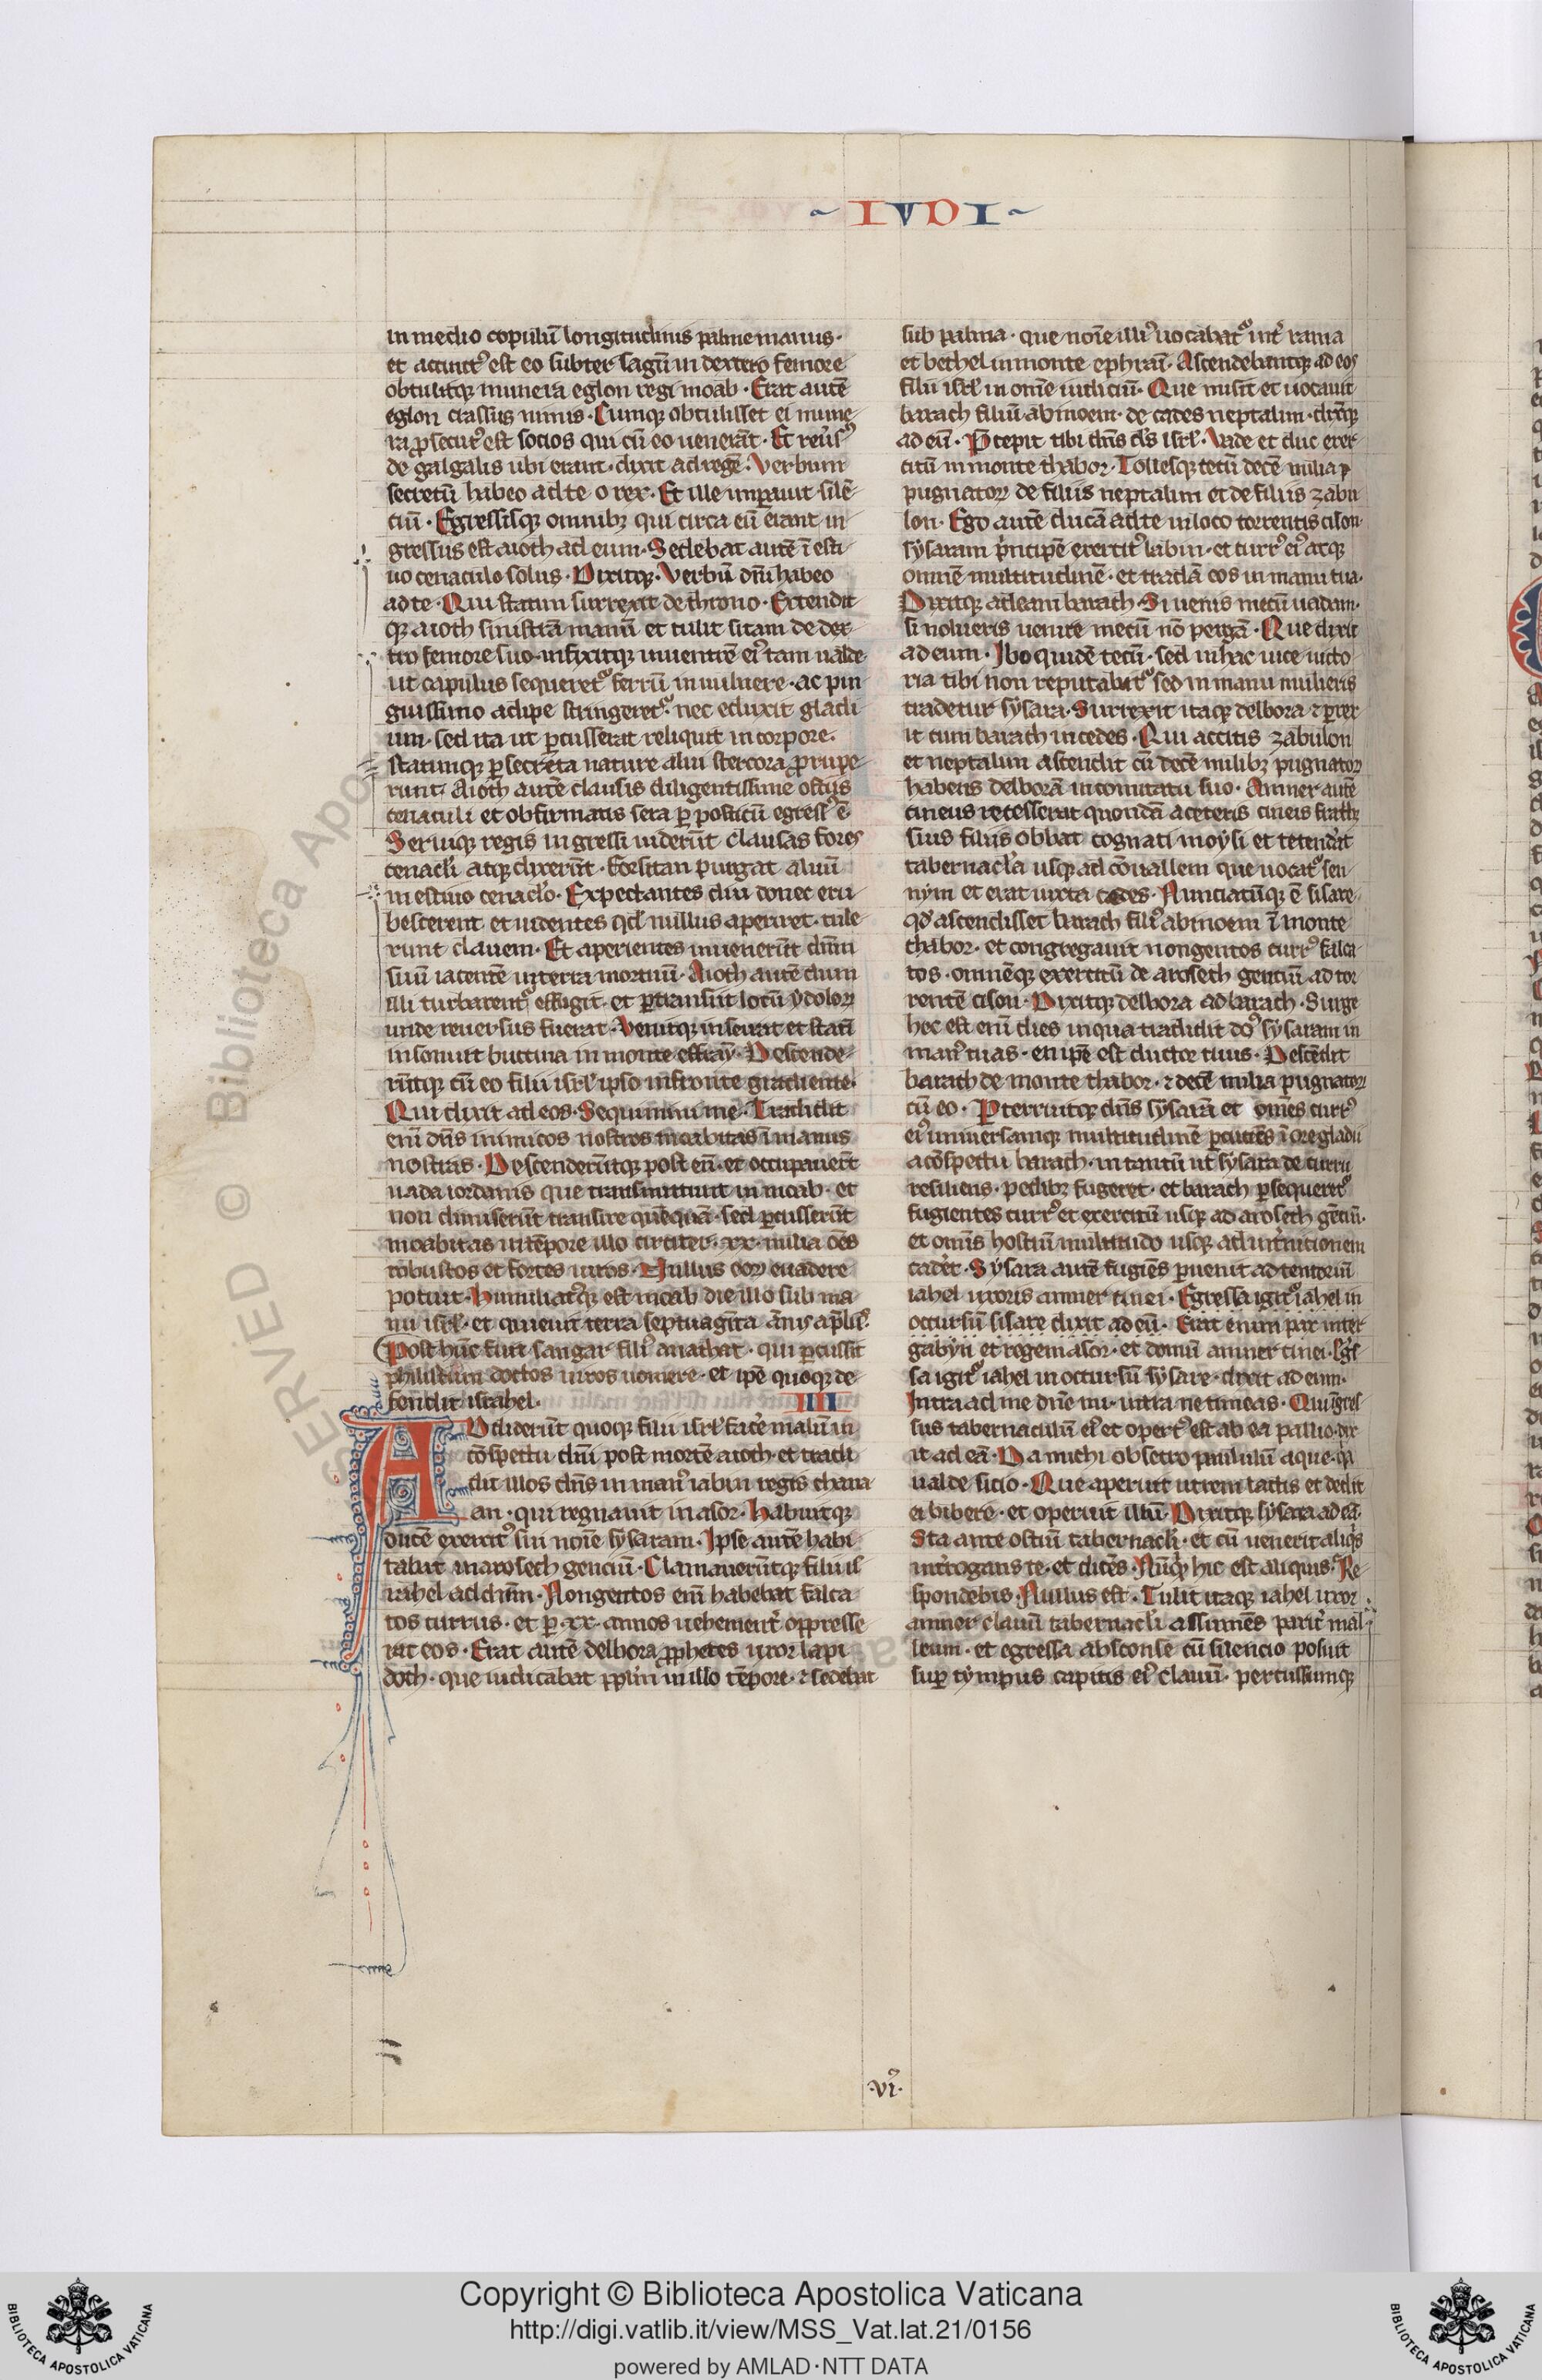 ~ IVDI ~
in medio copulũ longitudinis palme manus·
et accinct᾿ est eo subter sagũ in dextero femore
obtulitq; munera eglon regi moab · Erat autē
eglon crassus nimis · Cumq; obtulisset ei mune
ra ꝓsecut᾿ est socios qui cũ eo uenerāt · Et reũsꝰ
de galgalis ubi erant · dixit ad regē · Verbum
secretũ habeo ad te o rex · Et ille imꝑauit silē
ciũ · Egressisq; omnibꝫ qui circa eũ erant in
gressus est aioth ad eum · Sedebat autē ī esti
uo cenaculo solus · Dixitq; · Verbũ dñi habeo
ad te · Qui statim surrexit de throno · Extendit
q; aioth sinistrā manũ et tulit sicam de dex
tro femore suo · infixitq; in uentrē ei᾿ tam ualde·
ut capulus sequeretᷣ ferrũ in uulnere · ac pin
guissimo adipe stringeretᷣ · nec eduxit gladi
um · sed ita ut ꝑcusserat reliquit in corpore·
statimq; ꝑ secreta nature alui stercora ꝓrupe
runt · Aioth autē clausis diligentissime ostijs
cenaculi et obfirmatis sera ꝑ posticũ egress᾿ ē·
Seruiq; regis ingressi uiderũt clausas fores
cenacli atq; dixerũt · Forsitan purgat aluũ
in estiuo cenaclo · Expectantes diu donec eru
bescerent et uidentes qd᾿ nullus aperiret · tule
runt clauem · Et aperientes inuenerũt dñm
suũ iacentē in terra mortuũ · Aioth autē dum
illi turbarentᷣ effugit · et ꝑtransiit locũ ydoloꝝ
unde reuersus fuerat · Venitq; in seirat et statī
insonuit buccina in monte effraỹ · Descende
rũtq; cũ eo filii isrł ipso in fronte gradiente·
Qui dixit ad eos · Sequimini me · Tradidit
eni᾿ dñs inimicos nostros moabitas ī manus
nostras · Descenderũtq; post eũ · et occupauerũt
uada iordanis que transmittunt in moab · et
non dimiserũt transire quēquā · sed ꝑcusserũt
moabitas in tēpore illo circiter · xx · milia oēs
robustos et fortes uiros · Nullus eoꝝ euadere
potuit · Humiliat᾿q; est moab die illo sub ma
nu isrł · et quieuit terra septuaginta annis
Post hũc fuit sangar fili᾿ anathat · qui ꝑcussit
philistiim uiros uomere · et ipē quoq; de
fendit israhel · IIII
ADdiderũt quoq; filii isrł facē malũ in
cōspectu dñi post mortē aioth · et tradi
dit illos dñs in man᾿ iabin regis chana
an · qui regnauit in asor · Habuitq;
ducē exercit᾿ sui noīe sỹsaram · Ipse autē habi
tabat in aroseth genciũ · Clamauerũtq; filii is
rahel ad dñm · Nongentos eni᾿ habebat falca
tos currus · et ꝑ · xx · annos uehement᾿ oppresse
rat eos · Erat autē delbora ꝓphetes uxor lapi
doth · que iudicabat ppłm in illo tēpore · ⁊ sedebat
sub palma · que noīe illi᾿ uocabatᷣ int᾿ rama
et bethel in monte ephraī · Ascendebantq; ad eos
filii isrł in omē iudiciũ · Que misit et uocauit
barach filiũ abinoem · de cades neptalim · dixitq;
ad eũ · P̄cepit tibi dñs ds᾿ isrł · Vade et duc exer
citũ in monte thabor · Tollesq; tecũ decē milia
pugnatoꝝ de filiis neptalim et de filiis zabu
lon · Ego autē ducā ad te in loco torrentis cison·
sỹsaram p᾿ncipē exercit᾿ iabin · et curr᾿ ei᾿ atq;
omnē multitudinē · et tradā eos in manu tua·
Dixitq; ad eam barach · Si uenis mecũ uadam·
si nolueris uenire mecũ nō pergā · Que dixit
ad eum · Ibo quidē tecũ · sed in hac uice uicto
ria tibi non reputabitᷣ · sed in manu mulieris
tradetur sỹsara · Surrexit itaq; delbora ⁊ ꝑrex
it cum barach in cedes · Qui accitis zabulon
et neptalim ascendit cũ decē milibꝫ pugnatoꝝ
habens delborā in comitatu suo · Amner autē
cineus recesserat quondā a ceteris cineis fratbꝫ
suis filiis obbat cognati moysi et tetend᾿at
tabernacła usq; ad cōuallem que uocatᷣ sen
nym et erat iuxta cedes · Nunciatũq; ē sisare·
qd᾿ ascendisset barach fili᾿ abinoem ī monte
thabor · et congregauit nongentos curr᾿ falca
tos · omnēq; exercitũ de aroseth gentiũ ad tor
rentē cison · Dixitq; delbora ad barach · Surge
hec est eni᾿ dies in qua tradidit do᾿ sỹsaram in
man᾿ tuas · en ipē est ductor tuus · Descēdit
barach de monte thabor · ⁊ decē milia pugnatoꝝ
cũ eo · Pterruitq; dñs sỹsarā et omēs curr᾿
ei᾿ uniuersamq; multitudinē ꝑcutiēs ī ore gladii
a cōspectu barach · in tantũ ut sỹsara de curru
resiliens · pedibꝫ fugeret · et barach ꝑsequeretᷣ
fugientes curr᾿ et exercitũ usq; ad aroseth gētiũ·
et omīs hostiũ multitudo usq; ad int᾿nitionem
cadēt · Sỹsara autē fugiēs ꝑuenit ad tentoriũ
iahel uxoris amner cinei · Egressa igitᷣ iahel in
occursũ sisare dixit ad eũ · Erat enim pax inter
gabyn et regem asor · et domũ amner cinei · Egs
sa igitᷣ iahel in occursũ sỹsare · dixit ad eum·
Intra ad me dñe mi · intra ne timeas · Qui īgres
sus tabernaculũ ei᾿ et opert᾿ est ab ea pallio · dix
it ad eā · Da michi obsecro paululũ aque · q
ualde sicio · Que aperuit utrem lactis et dedit
ei bibere · et operuit illũ · Dixitq; sysara ad eā·
Sta ante ostiũ tabernacli · et cũ uenerit aliq᾿s
int᾿rogans te · et dicēs · Nũq᾿d hic est aliquis · Re
spondebis · Nullus est · Tulit itaq; iahel uxor
amner clauũ tabernacli assumēs parit᾿ mal
leum · et egressa absconse cũ silencio posuit
suꝑ tympus capitis ei᾿ clauũ · percussumq;
·vi·
Copyright © Biblioteca Apostolica Vaticana
http://digi.vatlib.it/view/MSS_Vat.lat.21/0156
powered by AMLAD·NTT DATA
BIBLIOTECA APOSTOLICA VATICANA
BIBLIOTECA APOSTOLICA VATICANA